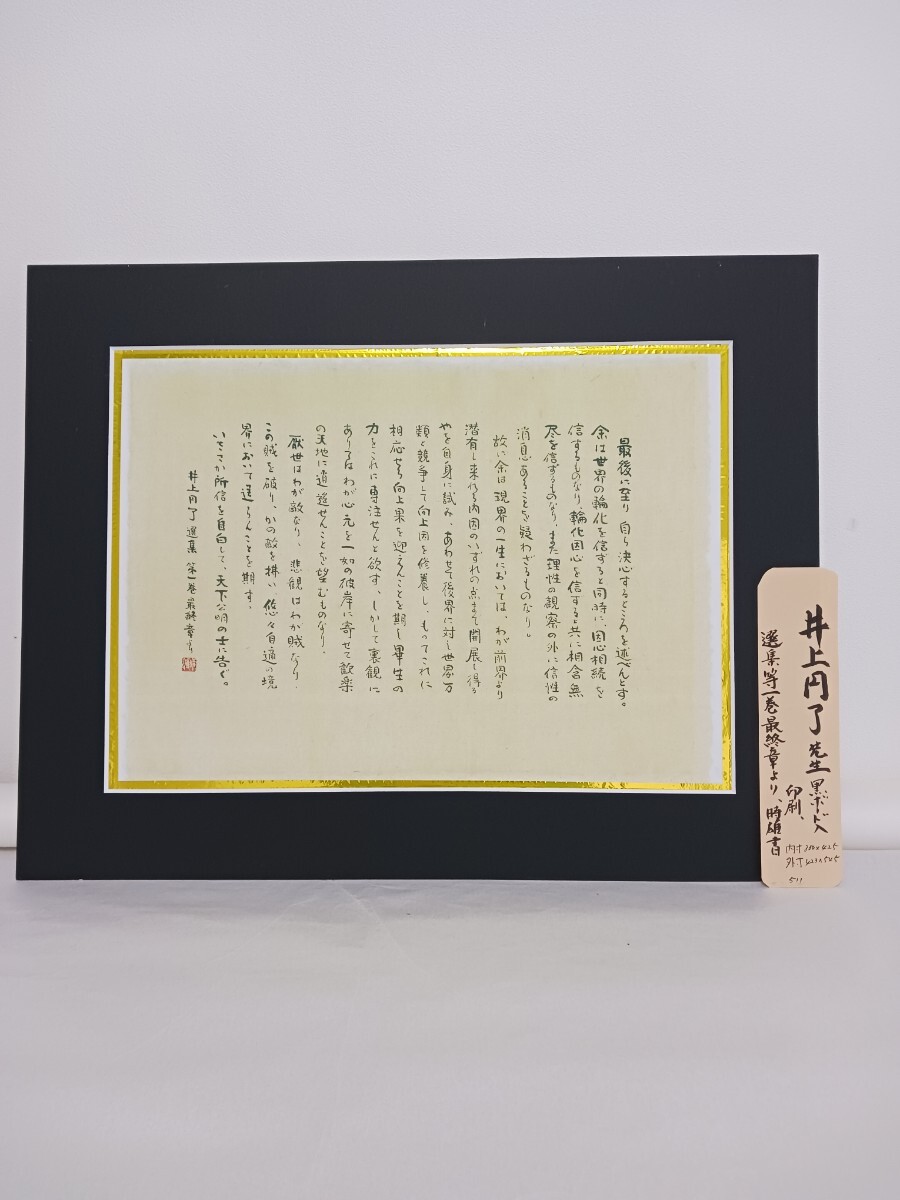 最後に至り自ら決心するところを述べんとす。
余は世界の輪化を信ずると同時に、因心相続を
信ずるものなり、輪化因心を信ずると共に相含無
尽を信ずるものなり、また理性の観察の外に信性の
消息あることを疑わざるものなり。
故に余は現界の一生においては、わが前界より
潜有し来れる内因のいずれの点まで開展し得る
やを自身に試み、あわせて後界に対し世界万
類と競争して向上因を修養し、もってこれに
相応せる向上果を迎えんことを期し畢生の
力をこれに専注せんと欲す、しかして裏観に
ありてはわが心元を一如の彼岸に寄せて歓楽
の天地に逍遥せんことを望むものなり、
厭世はわが敵なり、悲観はわが賊なり、
この賊を破り、かの敵を排い悠々自適の境
界において達らんことを期す、
いささか所信を自白して、天下公明の士に告ぐ。
井上円了選集第一巻最終章より
井上円了先生黒ボード入
印刷、
選集第一巻最終章より、時雄書
内寸 280×425
外寸 423×545
511